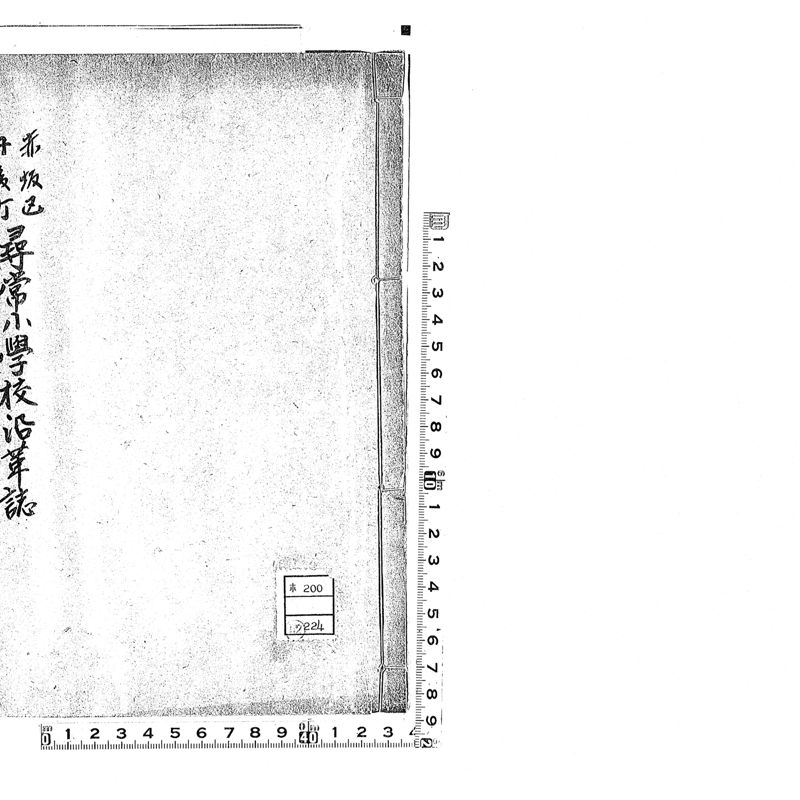 赤坂区
尋常小學校沿革誌
200
224
1 2 3 4 5 6 7 8 9 10 1 2 3 4 5 6 7 8 9
0 1 2 3 4 5 6 7 8 9 0 1 2 3